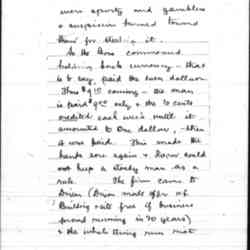 were sporty and gamblers
& suspicion turned toward
them for stealing it.
As the Boss commenced
holding back currency - that
is to say, paid the even dollars
Thus $9.15 coming - the man
is paid 9.00 only & the 15 cents
credited each week until it
amounted to One dollar, - then
it was paid. This made the
hands sore again & Razor could
not keep a steady man as a
rule. The firm came to
Dixon (Dixon made offer of
Building & site free of business
proved running in 20 years)
& the whole thing run most